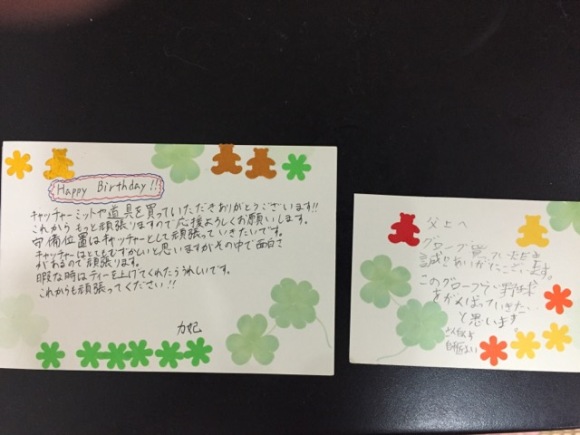 Happy Birthday!!
キャッチャーミットや道具を買っていただきありがとうございます!!
これから もっと頑張りますので応援よろしくお願いします。
守備位置はキャッチャーとして頑張っていきたいです。
キャッチャーはとてもむずかしいと思いますがその中で面白さ
がれるので頑張ります。
暇な時はティーを上げてくれたらうれしいです。
これからも頑張ってください!!
父上へ
グローブ買っていただき
ありがとうございます。
このグローブで野球
をがんばっていきたい
と思います